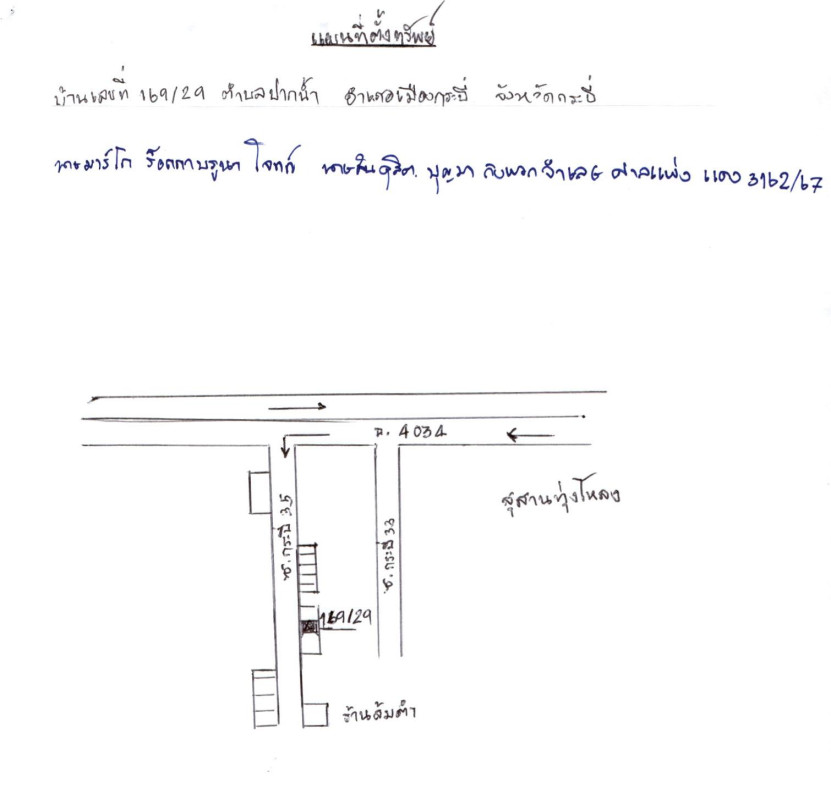 แผนที่ตั้งทรัพย์
บ้านเลขที่ 169/29 ตำบลปากน้ำ อำเภอเมืองกระบี่ จังหวัดกระบี่
นายมาร์โก ร็อคกาบรูนา โจทก์ บุญมา กับพวก จำเลย ศาลแพ่ง แดง 3162/67
ถ. 4034
สุสานทุ่งโหลง
ซ. กระบี่ 35
ซ. กระบี่ 33
169/29
ร้านส้มตำ